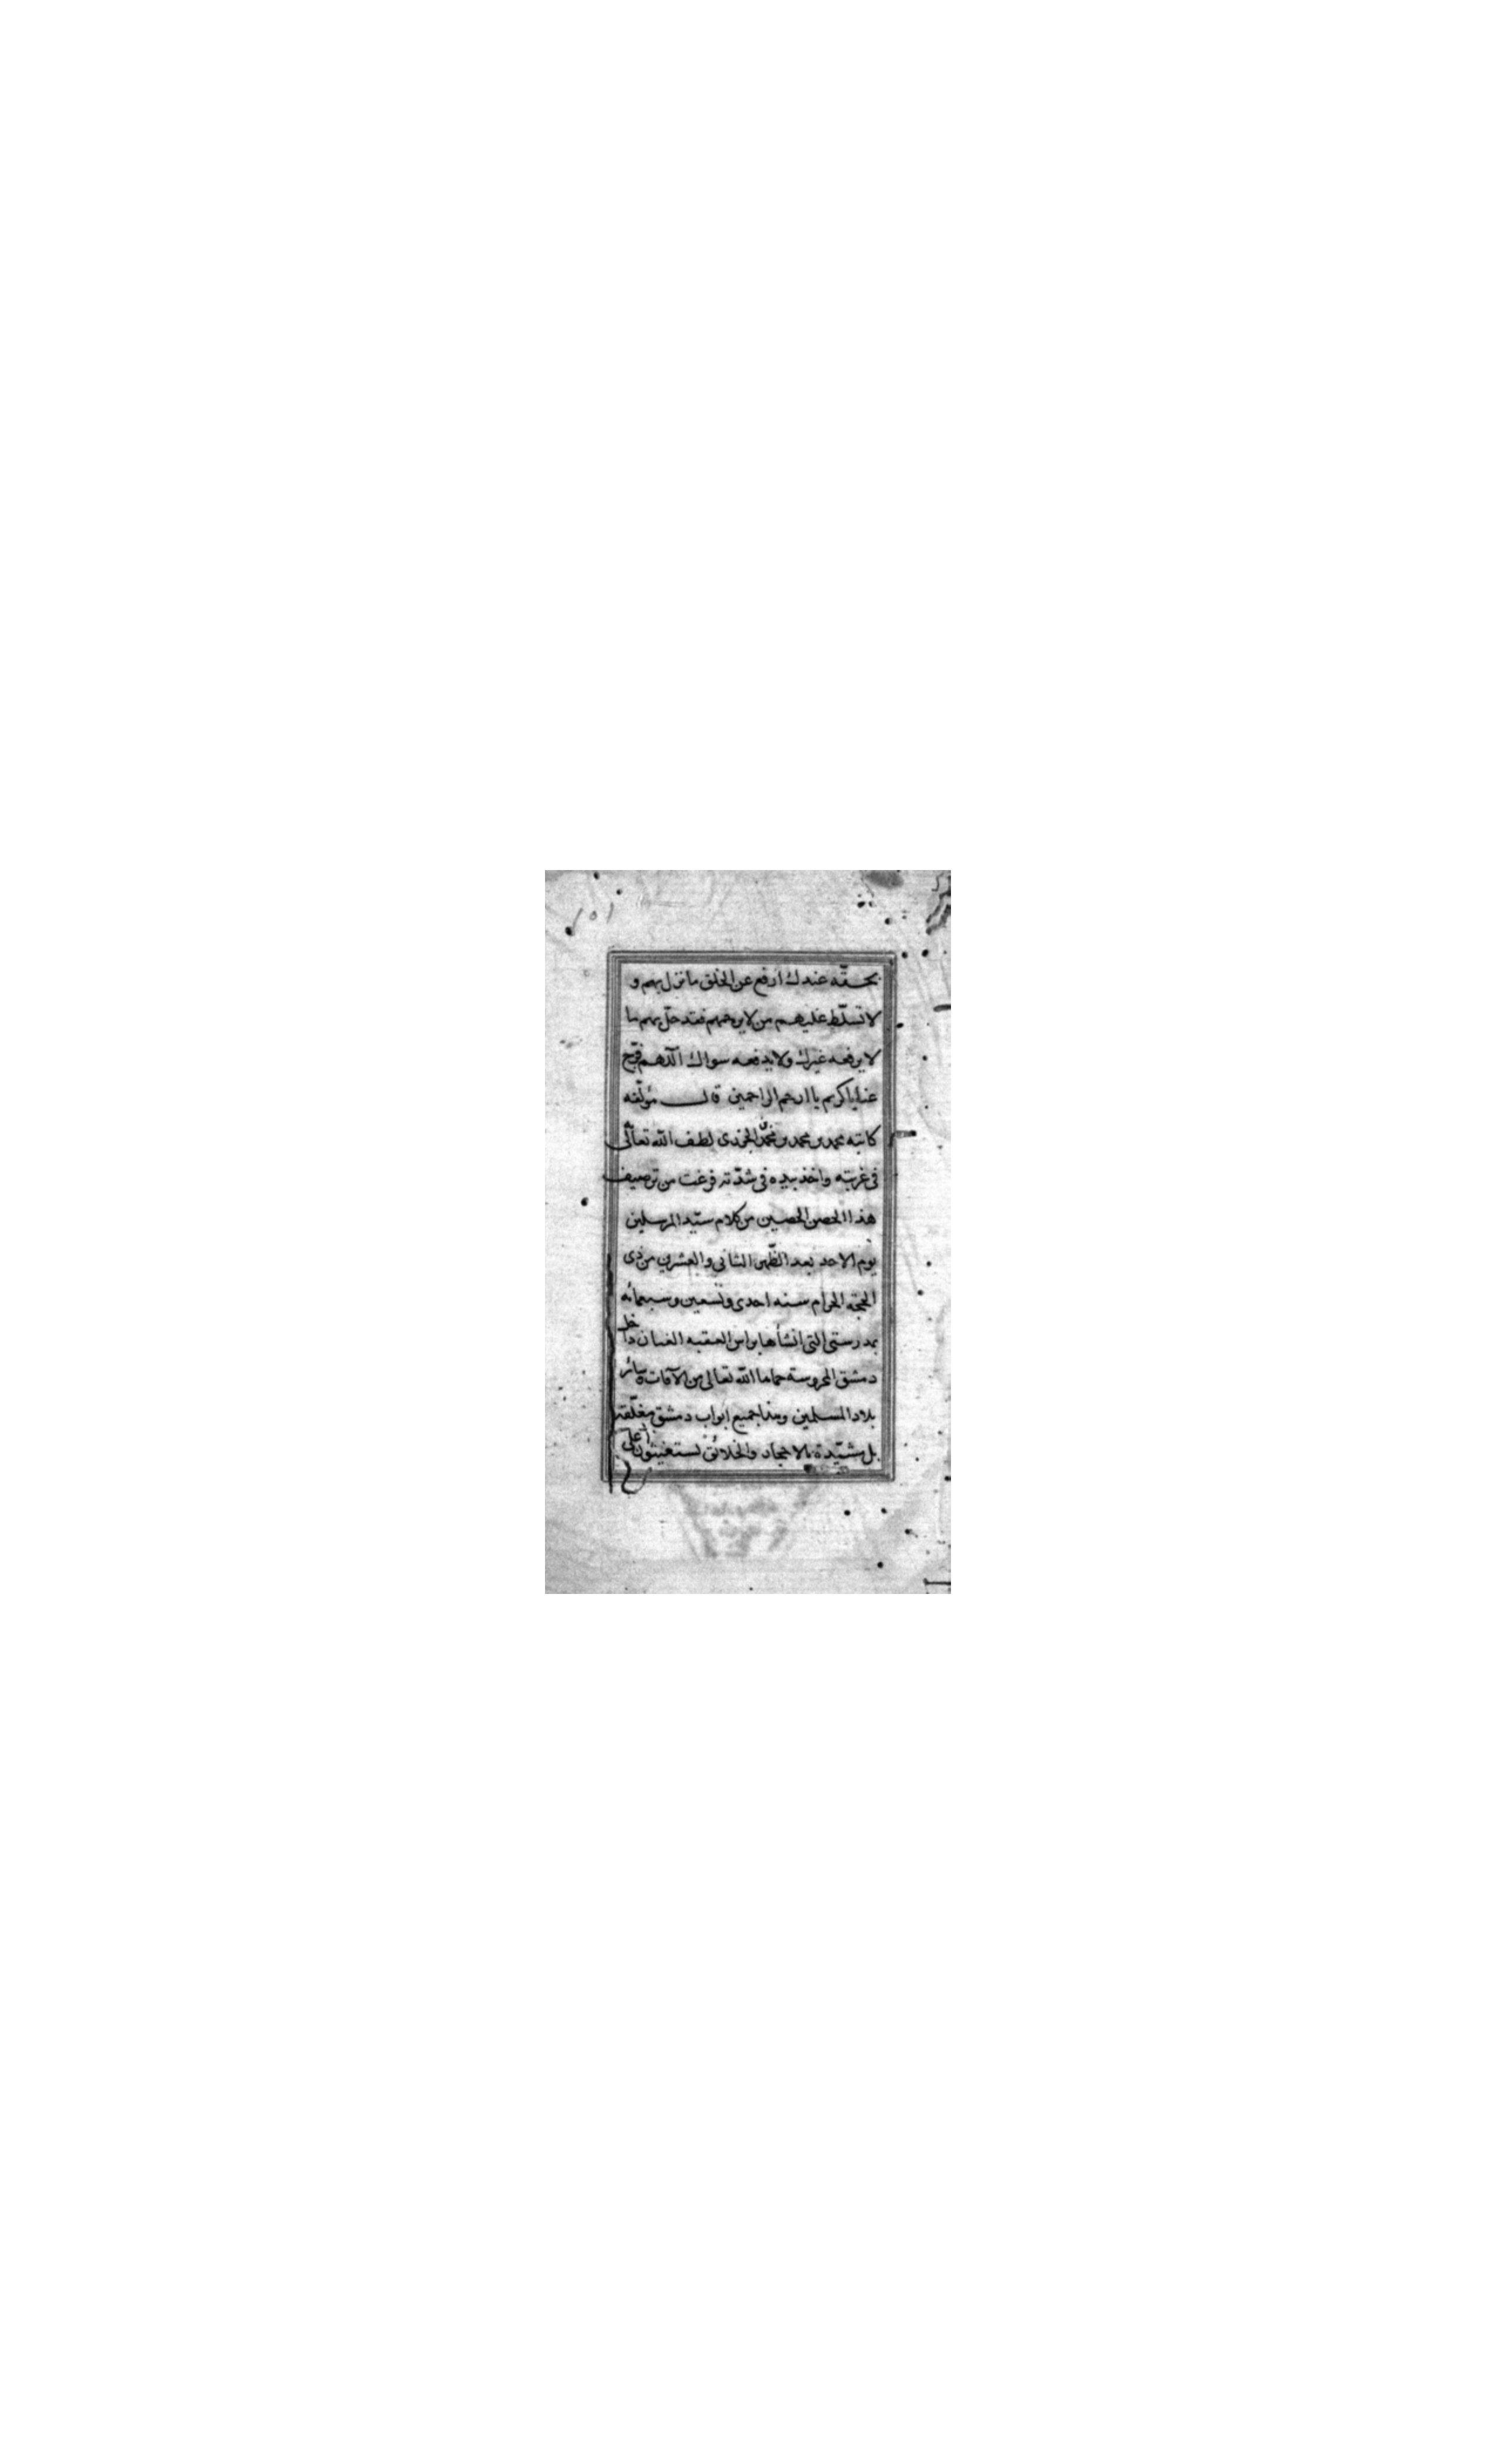 ١٥١
بحقّه عندك ارفع عن الخلق ما نزل بهم و
لا تسلّط عليهم من لا يرحمهم فقد حلّ بهم ما
لا يرفعه غيرك ولا يدفعه سواك اللّهم فرّج
عنا يا كريم يا ارحم الراحمين قال مؤلّفه
كاتبه محمد بن محمد بن محمّد الجزرى لطف الله تعالى
فى غربته واخذ بيده فى شدّته فرغت من ترصيف
هذا الحصن الحصين من كلام سيّد المرسلين
يوم الاحد بعد الظّهر الثانى والعشرين من ذى
الحجّة الحرام سنه احدى وتسعين وسبعمائه
بمدرستى التى انشأها براس العقبه داخل
دمشق المحروسة حماها الله تعالى من الآفات وسائر
بلاد المسلمين وهذا جميع ابواب دمشق مغلّقة
بل مشيّدة بالاحجار والخلائق يستغيثون على